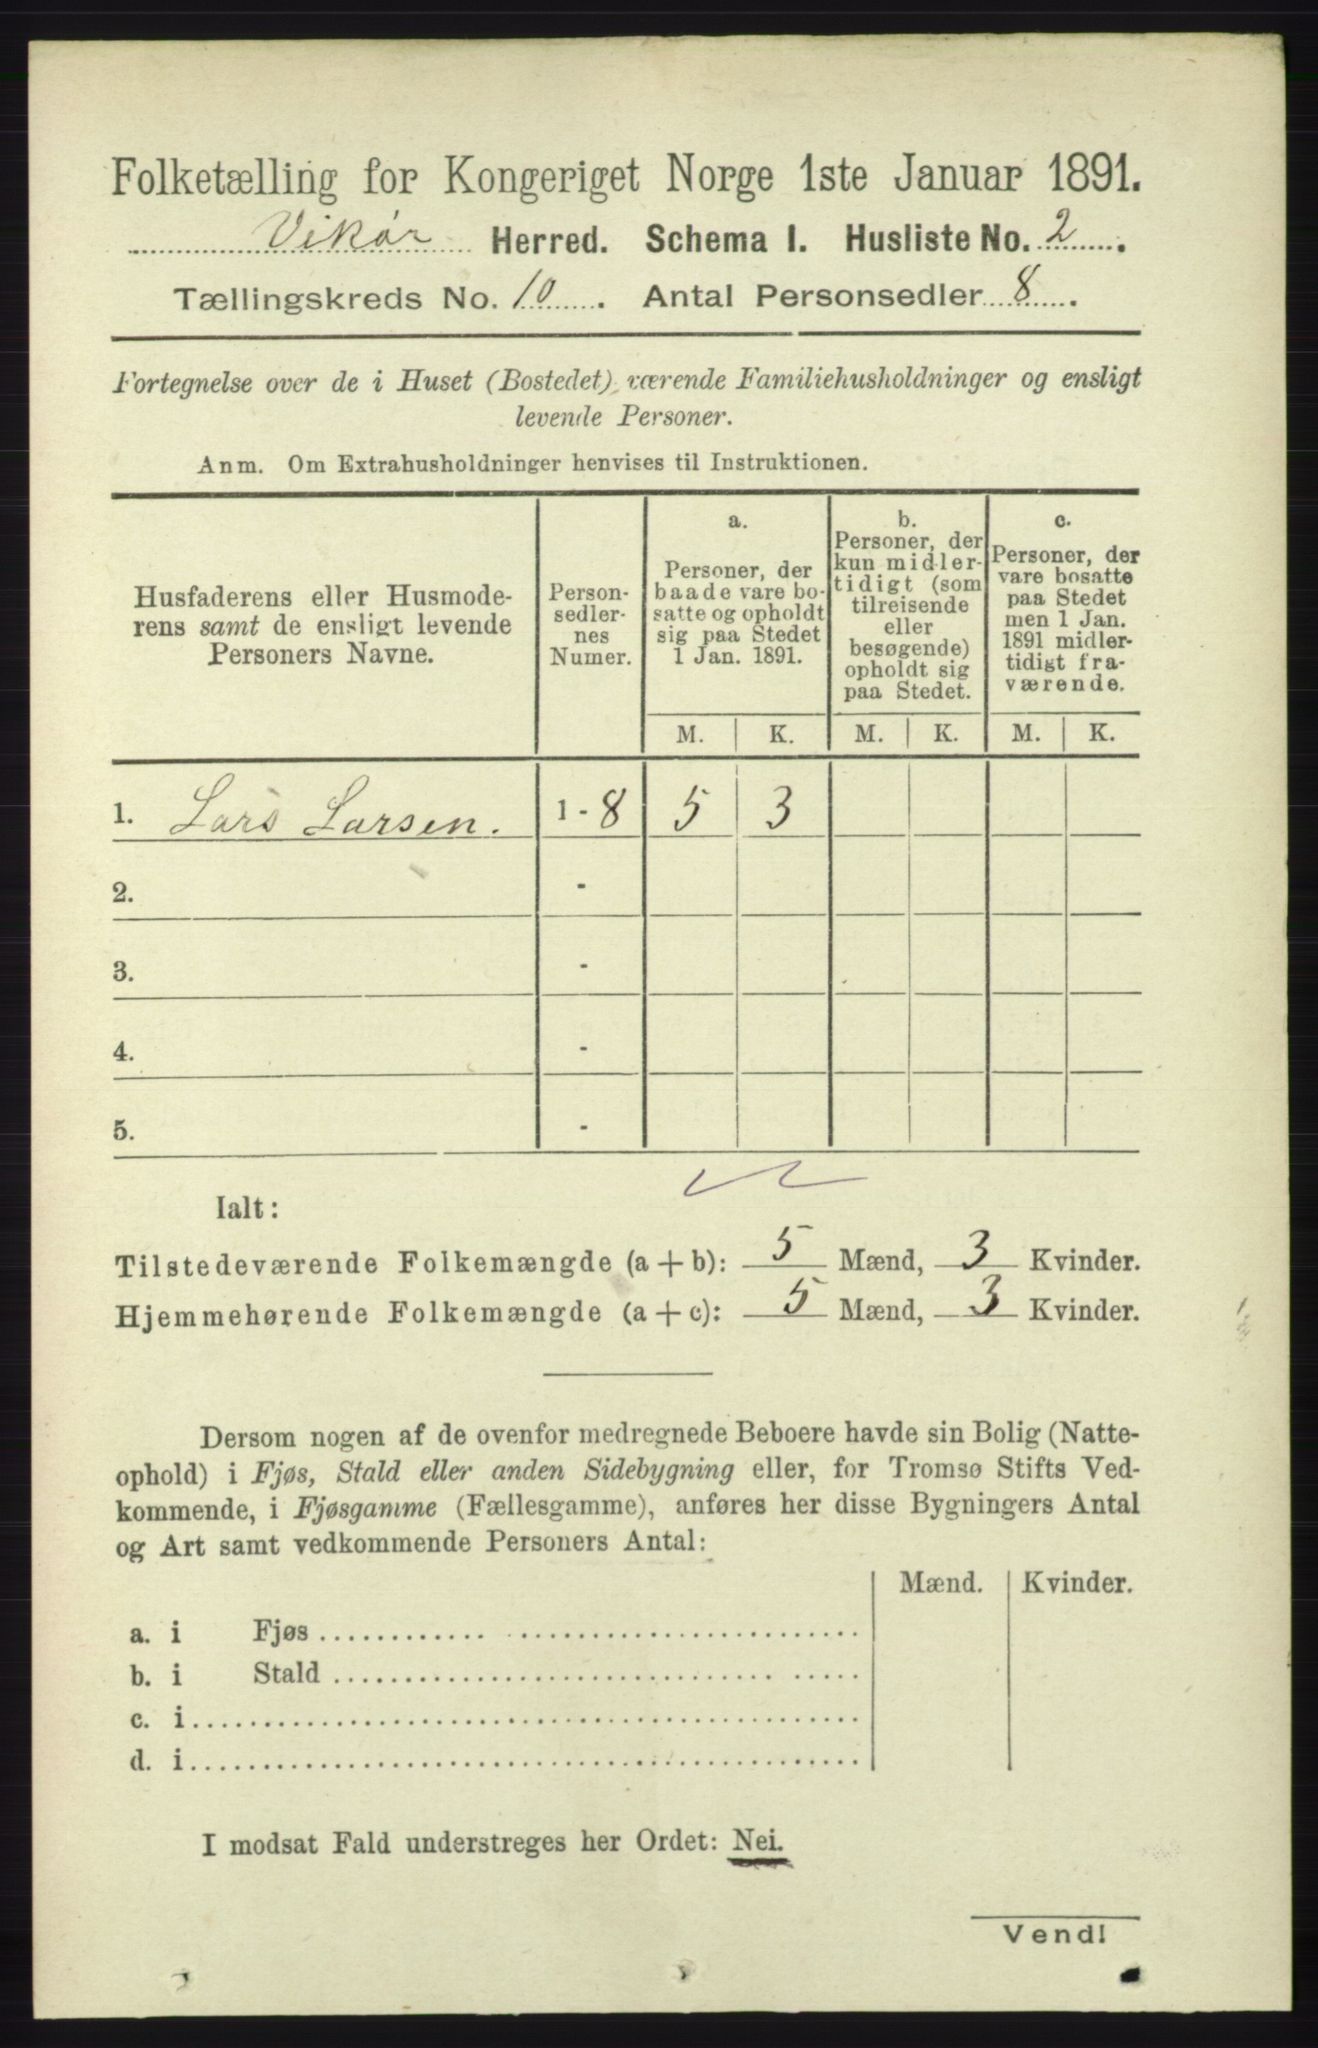 Folketælling for Kongeriget Norge 1ste Januar 1891.
Vikør Herred. Schema I. Husliste No. 2.
Tællingskreds No. 10. Antal Personsedler 8.
Fortegnelse over de i Huset (Bostedet) værende Familiehusholdninger og ensligt
levende Personer.
Anm. Om Extrahusholdninger henvises til Instruktionen.
Husfaderens eller Husmode-
rens samt de ensligt levende
Personers Navne.
Person-
sedler-
nes
Numer.
a.
Personer, der
baade vare bo-
satte og opholdt
sig paa Stedet
1 Jan. 1891.
b.
Personer, der
kun midler-
tidigt (som
tilreisende
eller
besøgende)
opholdt sig
paa Stedet.
c.
Personer, der
vare bosatte
paa Stedet
men 1 Jan.
1891 midler-
tidigt fra-
værende.
M. K. M. K. M. K.
1. Lars Larsen. 1 - 8 5 3
2. -
3. -
4. -
5. -
Ialt:
Tilstedeværende Folkemængde (a + b): 5 Mænd, 3 Kvinder.
Hjemmehørende Folkemængde (a + c): 5 Mænd, 3 Kvinder.
Dersom nogen af de ovenfor medregnede Beboere havde sin Bolig (Natte-
ophold) i Fjøs, Stald eller anden Sidebygning eller, for Tromsø Stifts Ved-
kommende, i Fjøsgamme (Fællesgamme), anføres her disse Bygningers Antal
og Art samt vedkommende Personers Antal:
Mænd. Kvinder.
a. i Fjøs
b. i Stald
c. i
d. i
I modsat Fald understreges her Ordet: Nei.
Vend!